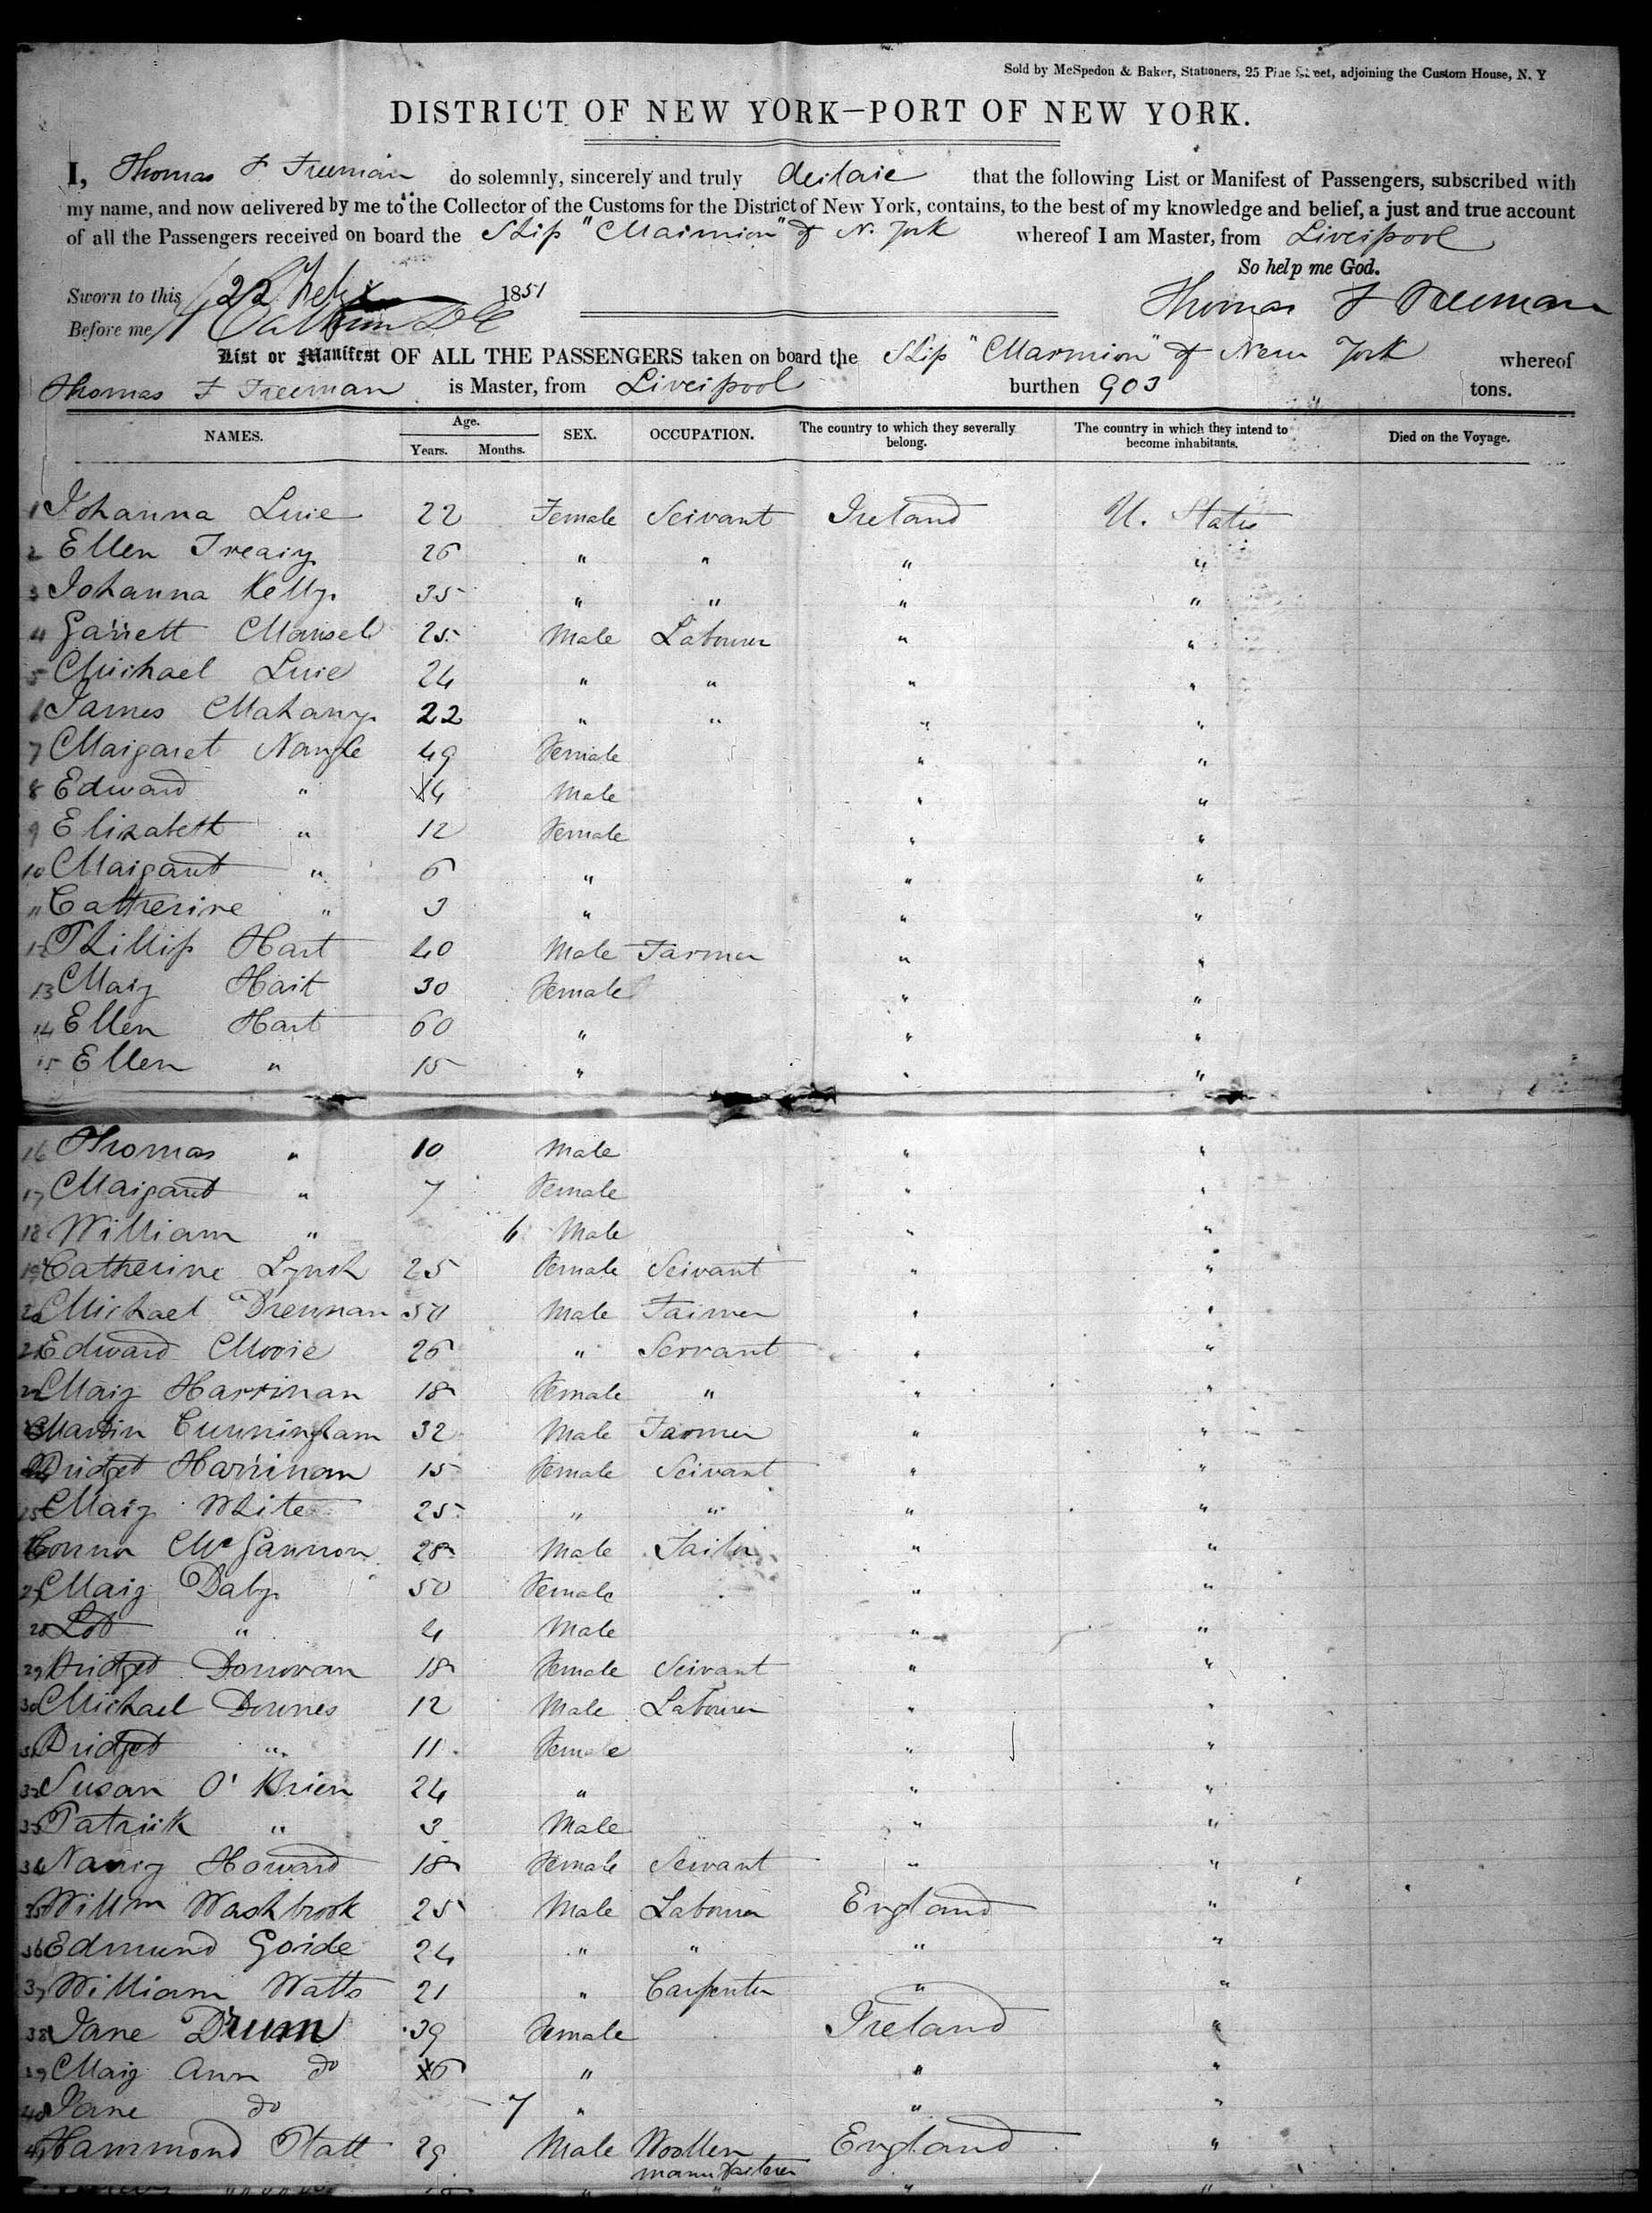 Sold by McSpedon & Baker, Stationers, 25 Pine Street, adjoining the Custom House, N. Y
DISTRICT OF NEW YORK—PORT OF NEW YORK.
I, Thomas F Freeman do solemnly, sincerely and truly declare that the following List or Manifest of Passengers, subscribed with
my name, and now delivered by me to the Collector of the Customs for the District of New York, contains, to the best of my knowledge and belief, a just and true account
of all the Passengers received on board the Ship "Marmion" of N. York whereof I am Master, from Liverpool
So help me God.
Sworn to this 22 Feby 1851 Thomas F Freeman
Before me
List or Manifest OF ALL THE PASSENGERS taken on board the Ship "Marmion" of New York whereof
Thomas F Freeman is Master, from Liverpool burthen 903 tons.
NAMES. Age. SEX. OCCUPATION. The country to which they severally belong. The country in which they intend to become inhabitants. Died on the Voyage.
Years. Months.
1 Johanna 22 Female Servant Ireland U. States
2 Ellen Treacy 26 " " " "
3 Johanna Kelly 35 " " " "
4 Garrett Mansel 25 Male Labourer " "
5 Michael 24 " " " "
6 James Mahany 22 " " " "
7 Margaret Nangle 49 Female " "
8 Edward " 14 Male " "
9 Elizabeth " 12 Female " "
10 Margaret " 6 " " "
11 Catherine " 3 " " "
12 Phillip Hart 40 Male Farmer " "
13 Mary Hart 30 Female " "
14 Ellen Hart 60 " " "
15 Ellen " 15 " " "
16 Thomas " 10 Male " "
17 Margaret " 7 Female " "
18 William " 6 Male " "
19 Catherine Lynch 25 Female Servant " "
20 Michael Drennan 50 Male Farmer " "
21 Edward Moore 26 " Servant " "
22 Mary Harrinan 18 Female " " "
23 Martin Cunningham 32 Male Farmer " "
24 Bridget Harrinan 15 Female Servant " "
25 Mary White 25 " " " "
26 Connor McGannon 28 Male Tailor " "
27 Mary Daly 50 Female " "
28 " 4 Male " "
29 Bridget Donovan 18 Female Servant " "
30 Michael Downes 12 Male Labourer " "
31 Bridget " 11 Female " "
32 Susan O'Brien 24 " " "
33 Patrick " 3 Male " "
34 Nancy Howard 18 Female Servant " "
35 Willm Washbrook 25 Male Labourer England "
36 Edmund Goide 24 " " " "
37 William Watts 21 " Carpenter " "
38 Jane Drum 39 Female Ireland "
39 Mary Ann do 6 " " "
40 Jane do 7 " " "
41 Hammond Platt 29 Male Woollen manufacturer England "